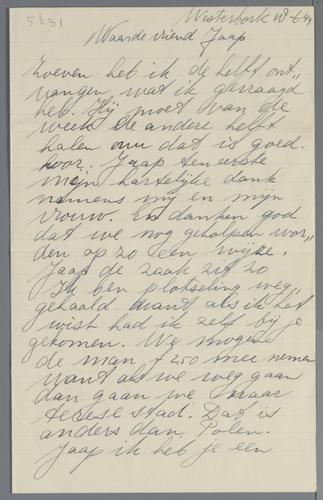 5631
Westerbork 18-6-44
Waarde vriend Jaap
Zoeven heb ik de helft ont„
vangen, wat ik gevraagd
heb. Hij moet van de
week de andere helft
halen ouw dat is goed.
hoor. Jaap teneerste
mijn hartelijke dank
namens mij en mijn
vrouw. En danken god
dat we nog geholpen wor„
den op zo een wijze.
Jaap de zaak zit zo
Ik ben plotseling weg„
gehaald want als ik het
wist had ik zelf bij je
gekomen. We mogen
de man f 250 mee nemen
want als we weg gaan
dan gaan we naar
terese stad. Dat is
anders dan Polen.
Jaap ik heb je een